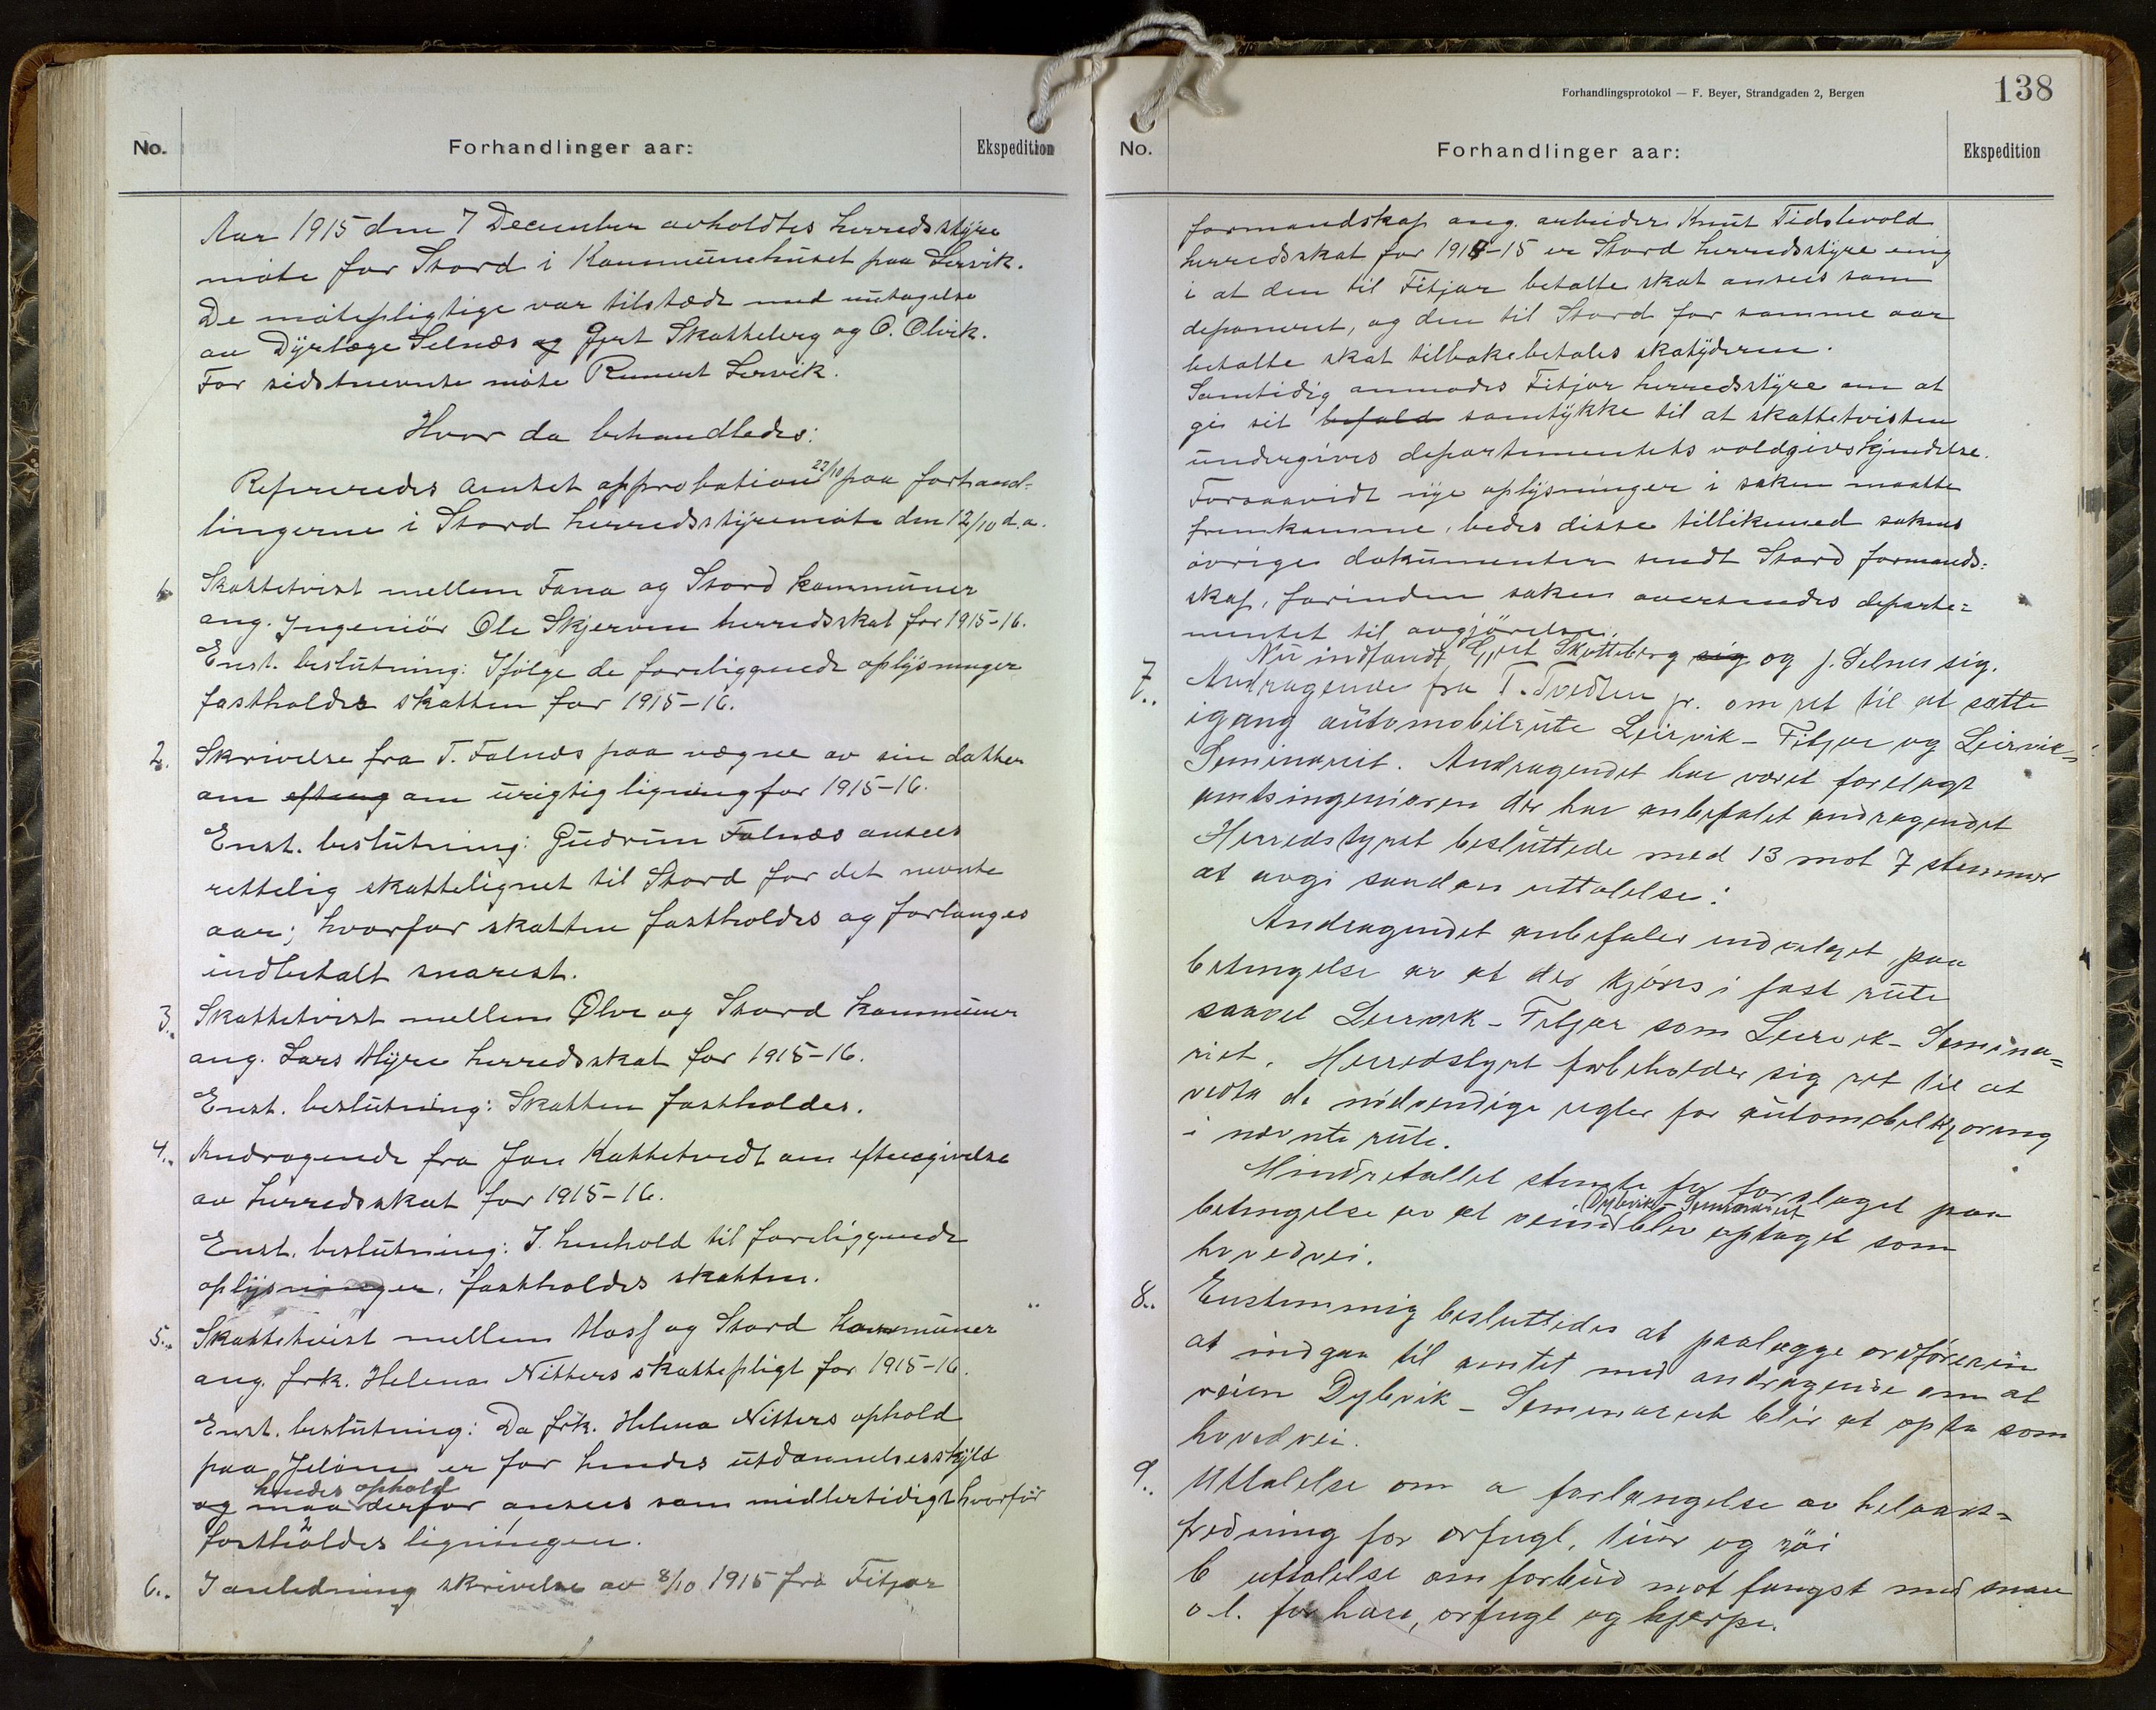 No. Forhandlinger aar: Ekspedition
Aar 1915 den 7 December avholdtes herredsstyre
møte for Stord i Kommunehuset paa Lervik.
De møtepligtige var tilstede med undtagelse
av Dyrlæge Selnæs og Gjert Skatteberg og O. Olvik.
For sidstnevnte møte Rumert Lervik.
Hvor da behandledes:
Refereredes amtet approbation 22/10 paa forhand-
lingerne i Stord herredsstyremøte den 12/10 d.a.
1. Skattetvist mellem Fana og Stord kommuner
ang. Ingeniør Ole Skjerven herredsskat for 1915-16.
Enst. beslutning: Ifølge de foreliggende oplysninger
fastholdes skatten for 1915-16.
2. Skrivelse fra T. Falnæs paa vegne av sin datter
om efterg om urigtig ligning for 1915-16.
Enst. beslutning: Gudrun Falnæs ansees
rettelig skattelignet til Stord for det nevnte
aar; hvorfor skatten fastholdes og forlanges
indbetalt snarest.
3. Skattetvist mellem Ølve og Stord kommuner
ang. Lars Myre herredsskat for 1915-16.
Enst. beslutning: Skatten fastholdes.
4. Andragende fra Jan Kattetvedt om eftergivelse
av herredsskat for 1915-16.
Enst. beslutning: I henhold til foreliggende
oplysninger, fastholdes skatten.
5. Skattetvist mellem Moss og Stord kommuner
ang. frk. Helena Nitters skattepligt for 1915-16.
Enst. beslutning: Da frk. Helena Nitters ophold
paa Jeløen er for hendes utdannelsesskyld
hendes ophold
og maa derfor ansees som midlertidigt hvorfor
fastholdes ligningen.
6. I anledning skrivelse av 8/10 1915 fra Fitjar
Forhandlingsprotokol — F. Beyer, Strandgaden 2, Bergen 138
No. Forhandlinger aar: Ekspedition
formandskap ang. arbeider Knut Tidshevold
herredsskat for 1914-15 er Stord herredsstyre enig
i at den til Fitjar betalte skat ansees som
deponeret, og den til Stord for samme aar
betalte skat tilbakebetales skatyderen.
Samtidig anmodes Fitjar herredsstyre om at
gi sit befald samtykke til at skattetvisten
undergives departementets voldgivskjendelse.
Forsaavidt nye oplysninger i saken maatte
fremkomme, bedes disse tillikemed sakens
øvrige dokumenter sendt Stord formands-
skap, forinden saken oversendes departe-
mentet til avgjørelse.
Nu indfandt Gjert Skatteberg sig og J. Selnes sig.
7. Andragende fra T. Tvedten jr. om ret til at sætte
igang automobilrute Leirvik - Fitjar og Leirvik-
Seminariet. Andragendet har været forelagt
amtsingeniøren der har anbefalet andragendet
Herredstyret besluttede med 13 mot 7 stemmer
at avgi saadan uttalelse:
Andragendet anbefales indvilget, paa
betingelse av at der kjøres i fast rute
saavel Leirvik - Fitjar som Leirvik - Semina-
riet. Herredstyret forbeholder sig ret til at
vedta de nødvendige regler for automobilkjøring
i nævnte rute.
Mindretallet stemte for forslaget paa
Dybvik - Seminariet
betingelse av at veien blev optaget som
hovedvei.
8. Enstemmig besluttedes at paalægge ordføreren
at indgaa til amtet med andragende om at
veien Dybvik - Seminariet blir at opta som
hovedvei.
9. Uttalelse om a forlængelse av helaars-
fredning for orfugl, tiur og røi
b uttalelse om forbud mot fangst med snare
o.l. for hare, orfugl og hjerpe.